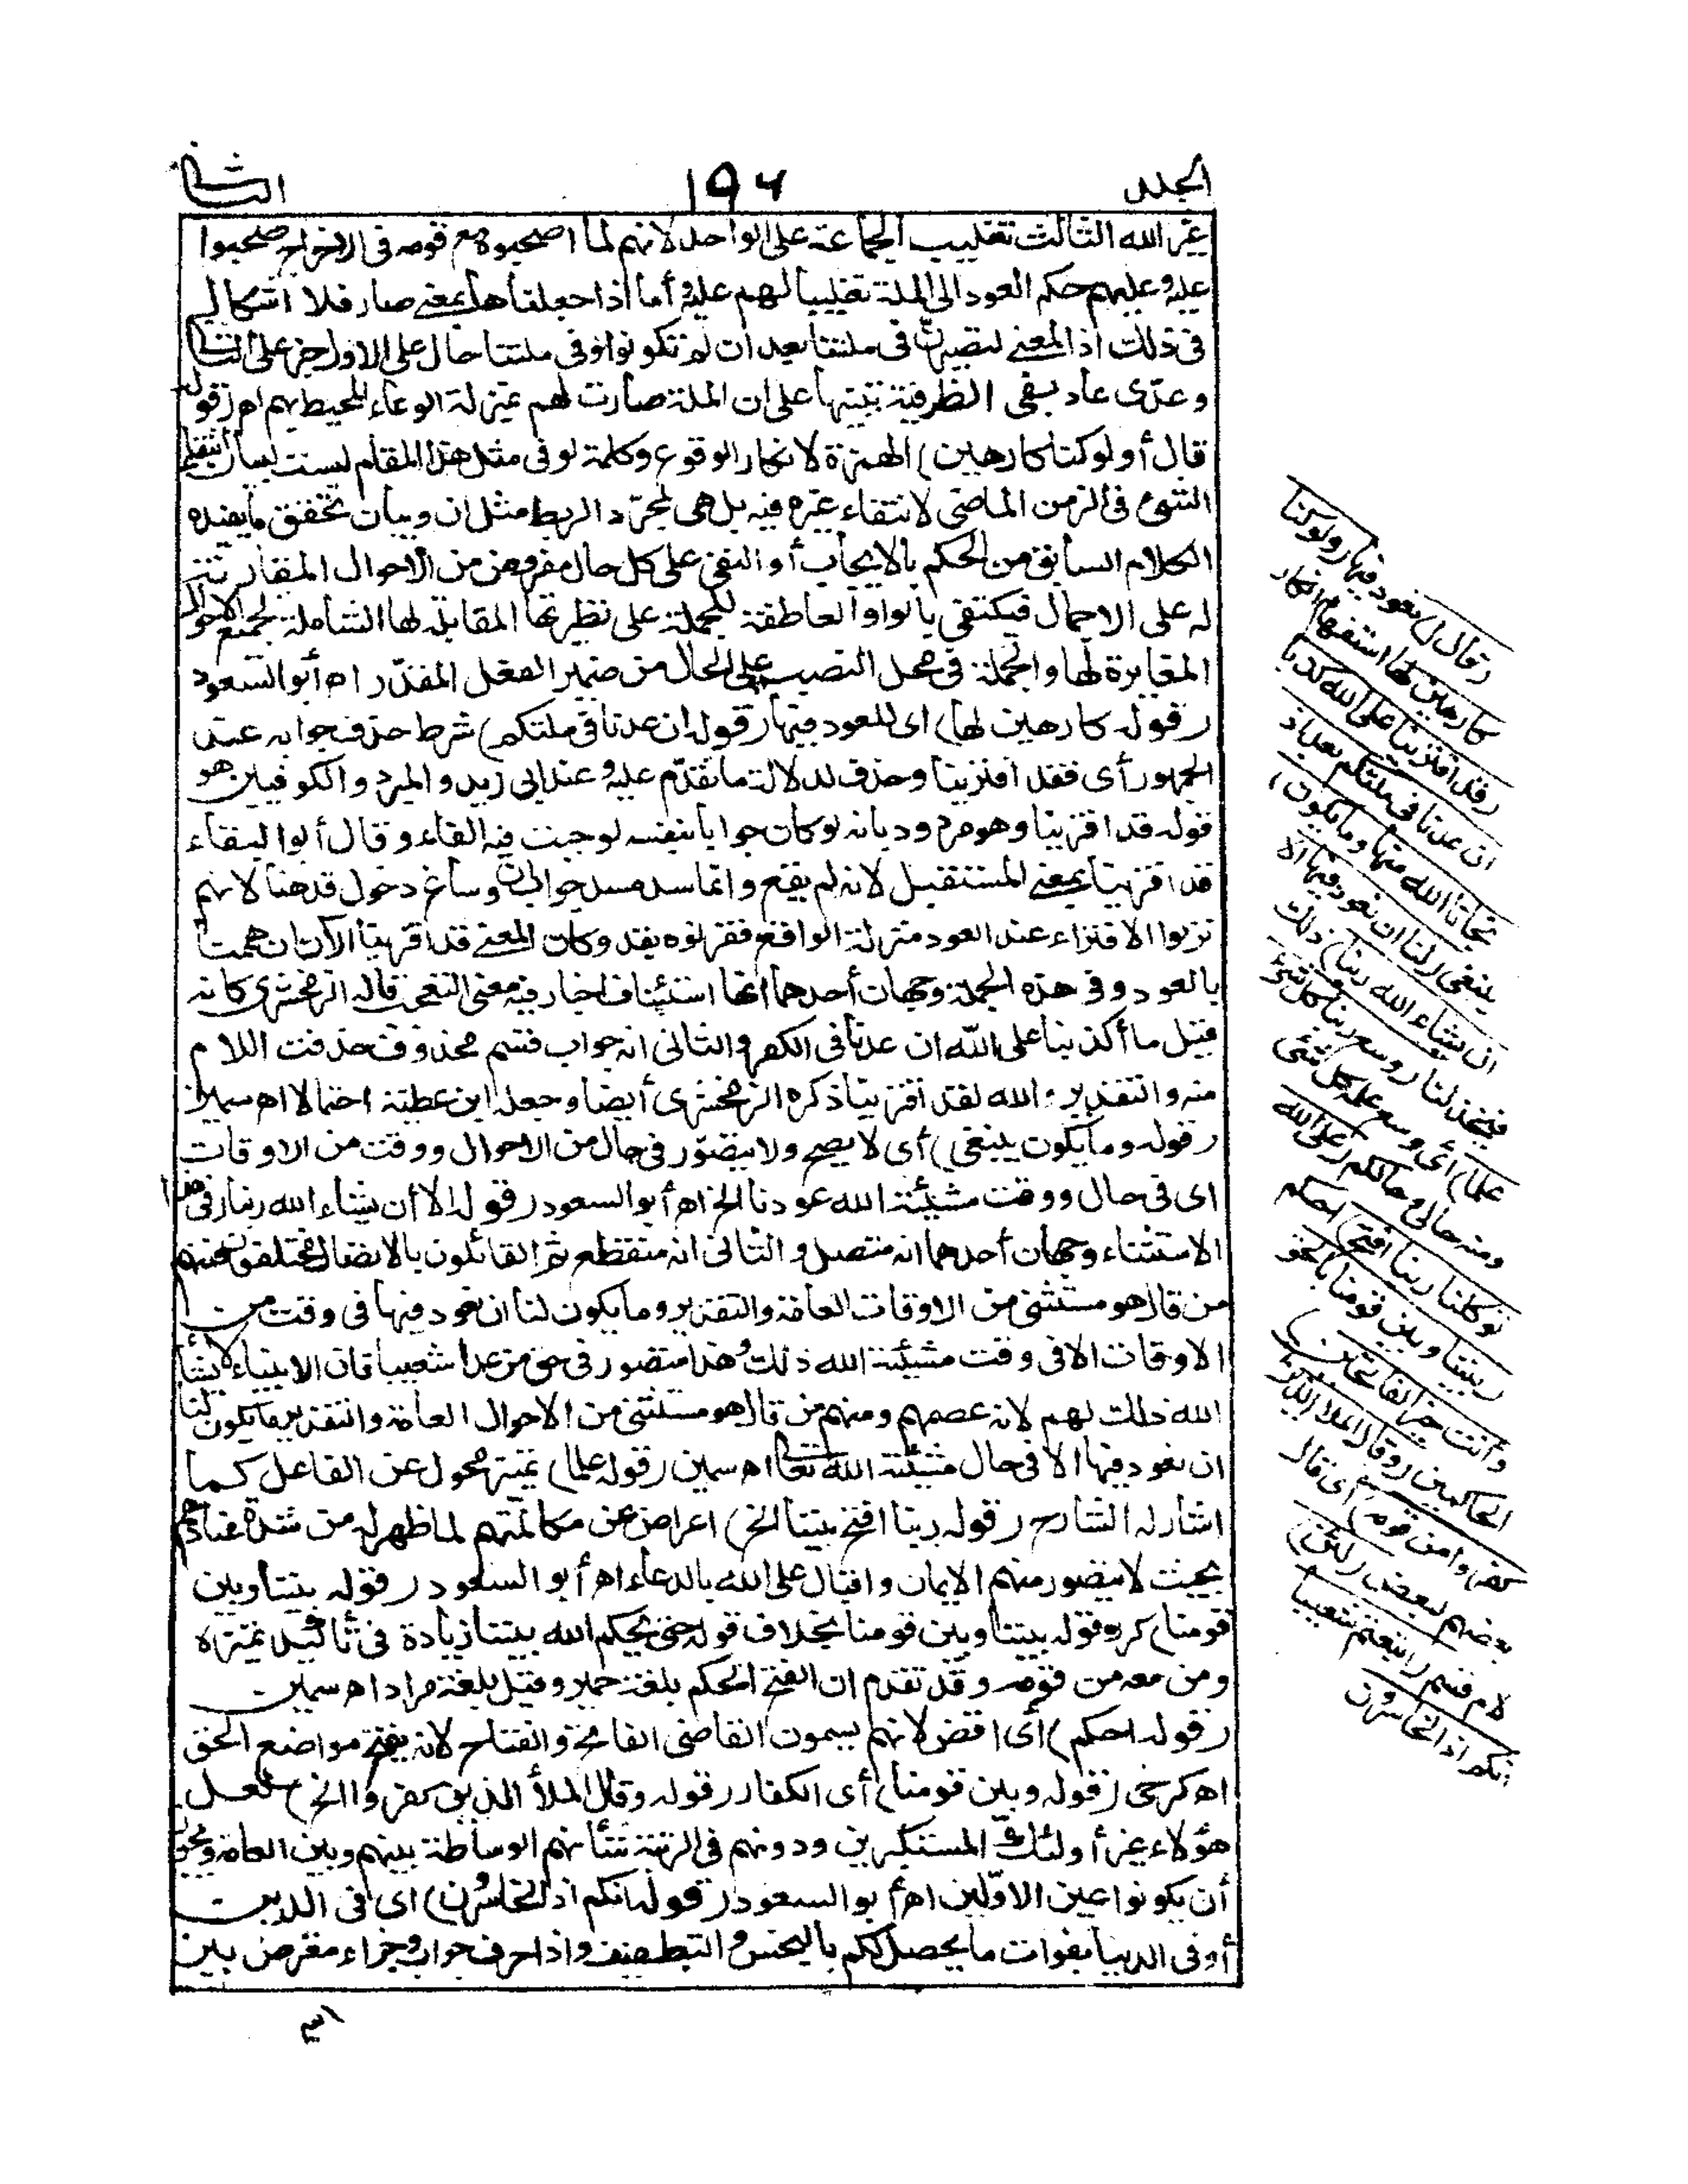 الجلد
١٩٦
الثانى
غير الله الثالث تغليب الجماعة على الواحد لانهم لما اصحبوه مع قومه فى الاخراج صحبوا
عليه وعليهم حكم العود الى الملة تغليبا لهم عليه وأما اذا جعلناها بمعنى صار فلا اشكال
فى ذلك اذ المعنى لتصيرن فى ملتنا بعد ان لم تكونوا وفى ملتنا حال على الاول خبر على الثانى
وعدّى عاد بفى الظرفية تنبيها على ان الملة صارت لهم بمنزلة الوعاء المحيط بهم اه (قوله
قال أولو كنا كارهين) الهمزة لانكار الوقوع وكلمة لو فى مثل هذا المقام ليست لبيان انتفاء
الشىء فى الزمن الماضى لانتفاء غيره فيه بل هى لمجرّد الربط مثل ان وبيان تحقق ما يفيده
الكلام السابق من الحكم بالايجاب أو النفى على كل حال مفروض من الاحوال المقارنة
له على الاجمال فيكتفى بالواو العاطفة للجملة على نظيرتها المقابلة لها الشاملة لجميع الاحوال
المغايرة لها والجملة فى محل النصب على الحال من ضمير الفعل المقدّر اه أبو السعود
(قوله كارهين لها) اى للعود فيها (قوله ان عدنا فى ملتكم) شرط حذف جوابه عند
الجمهور أى فقد افترينا وحذف لدلالة ما تقدّم عليه وعند ابى زيد والمبرد والكوفيين هو
قوله قد افترينا وهو مردود بانه لو كان جوابا بنفسه لوجبت فيه الفاء وقال أبو البقاء
قد افترينا بمعنى المستقبل لانه لم يقع وانما سد مسد جواب ان وساغ دخول قد هنا لانهم
نزلوا الافتراء عند العود منزلة الواقع فقرنوه بقد وكان المعنى قد افترينا الآن ان هممنا
بالعود وفى هذه الجملة وجهان أحدهما انها استئناف اخبار فيه معنى التعجب قاله الزمخشرى كانه
قيل ما أكذبنا على الله ان عدنا فى الكفر والثانى انه جواب قسم محذوف حذفت اللام
منه والتقدير والله لقد افترينا ذكره الزمخشرى أيضا وجعله ابن عطية احتمالا اه سمين
(قوله وما يكون ينبغى) أى لا يصح ولا يتصوّر فى حال من الاحوال ووقت من الاوقات
اى فى حال ووقت مشيئة الله عودنا الخ اه أبو السعود (قوله الا أن يشاء الله ربنا) فى هذا
الاستثناء وجهان أحدهما انه متصل والثانى انه منقطع ثم القائلون بالاتصال مختلفون فمنهم
من قال هو مستثنى من الاوقات العامة والتقدير وما يكون لنا ان نعود فيها فى وقت من
الاوقات الا فى وقت مشيئة الله ذلك وهذا متصور فى حق من عدا شعيبا فان الانبياء لا يشأ
الله ذلك لهم لانه عصمهم ومنهم من قال هو مستثنى من الاحوال العامة والتقدير ما يكون لنا
ان نعود فيها الا فى حال مشيئة الله تعالى اه سمين (قوله علما) تمييز محول عن الفاعل كما
اشار له الشارح (قوله ربنا افتح بيننا الخ) اعراض عن مكالمتهم لما ظهر له من شدة عنادهم
بحيث لا يتصور منهم الايمان واقبال على الله بالدعاء اه أبو السعود (قوله بيننا وبين
قومنا) كرر قوله بيننا وبين قومنا بخلاف قوله حتى يحكم الله بيننا زيادة فى تأكيد تمييزه
ومن معه من قومه وقد تقدم ان الفتح الحكم بلغة حمير وقيل بلغة مراد اه سمين
(قوله احكم) أى اقض لانهم يسمون القاضى الفاتح والفتاح لانه يفتح مواضع الحق
اه كرخى (قوله وبين قومنا) أى الكفار (قوله وقال الملأ الذين كفروا الخ) لعل
هؤلاء غير أولئك المستكبرين ودونهم فى الرتبة شأنهم الوساطة بينهم وبين العامة ويجوز
أن يكونوا عين الاوّلين اه أبو السعود (قوله انكم اذا لخاسرون) اى فى الدين
أو فى الدنيا بفوات ما يحصل لكم بالبخس والتطفيف واذا حرف جواب وجزاء معترض بين
(قال أ) نعود فيها (ولو كنا
كارهين) لها استفهام انكار
(قد افترينا على الله كذبا
ان عدنا فى ملتكم بعد اذ
نجانا الله منها وما يكون)
ينبغى (لنا ان نعود فيها الا
ان يشاء الله ربنا) ذلك
فيخذلنا (وسع ربنا كل شىء
علما) أى وسع علمه كل شىء
ومنه حالى وحالكم (على الله
توكلنا ربنا افتح) احكم
(بيننا وبين قومنا بالحق
وأنت خير الفاتحين)
الحاكمين (وقال الملأ الذين
كفروا من قومه) أى قال
بعضهم لبعض (لئن)
لام قسم (اتبعتم شعيبا
انكم اذا لخاسرون